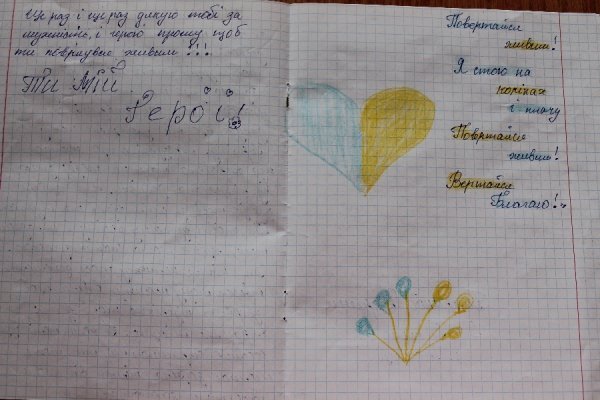 Ще раз і ще раз дякую тобі за
мужність, і герою прошу щоб
ти повернувся живим!!!
Ти Мій
Герой!
Повертайся
живим!
Я стою на
колінах
і плачу
Повертайся
живим!
Вертайся
Благаю!